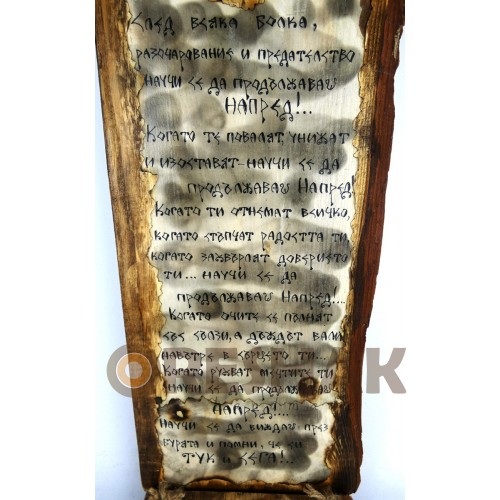 След всяка болка,
разочарование и предателство
научи се да продължаваш
НАПРЕД!...
Когато те повалят, унижат
и изоставят - научи се да
продължаваш Напред!
Когато ти отнемат всичко,
когато стъпчат радостта ти,
когато захвърлят доверието
ти... научи се да
продължаваш Напред!...
Когато очите се пълнят
със сълзи, а дъждът вали
навътре в сърцето ти...
Когато рухват мечтите ти
научи се да продължаваш
НАПРЕД!...
научи се да виждаш през
бурята и помни, че си
ТУК и СЕГА!...